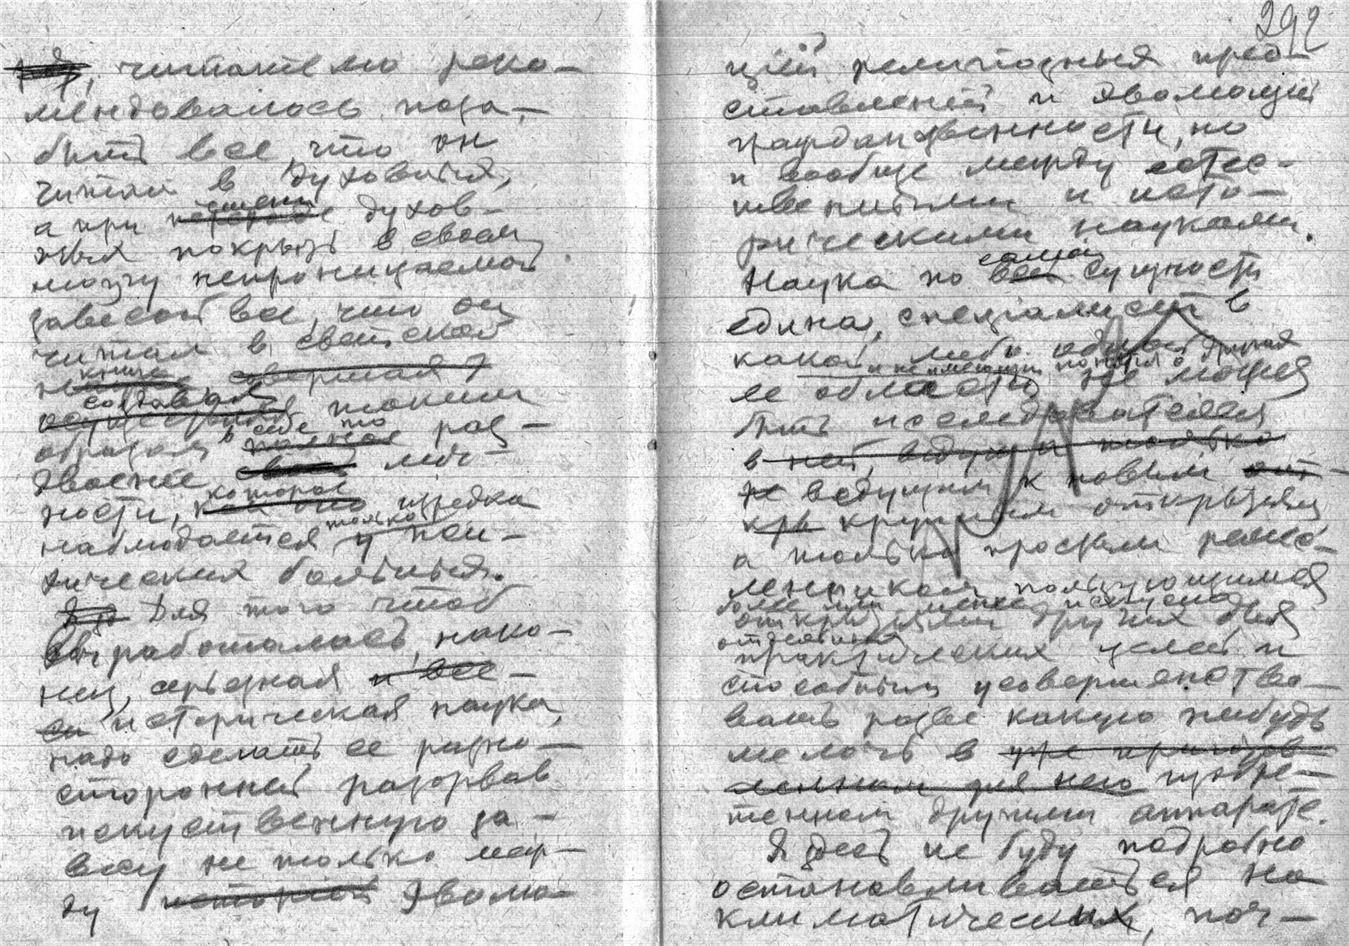 читателю реко-
мендовалось поза-
быть все, что он
читал в духовных,
а при чтении духов-
ных покрыть в своем
мозгу непроницаемой
завесой все, что он
читал в светской
книге
создавая таким
образом в себе то раз-
двоение лич-
ности, которое изредка
наблюдается только у пси-
хических больных.
Для того чтоб
выработалась, нако-
нец, серьезная
историческая наука,
надо сделать ее разно-
сторонней разорвав
искуственную за-
весу не только меж-
ду историей эволю-
292
цией религиозных пред-
ставлений и эволюцией
гражданственности, но
и вообще между естес-
твенными и исто-
рическими науками.
Наука по самой сущности
едина, специалист в
какой либо одной
и не имеющий понятия о других
ее области не может
быть исследователем
в ней, ведущим только
ведущим к новым
крупным открытиям
а только простым реме-
ленником пользующимся
более или менее искусно
открытиями других для
практических целей и
способным усовершенство-
вать разве какую нибудь
мелочь в
изобре-
тенном другими аппарате.
Я здесь не буду подробно
останавливаться на
климатических, поч-